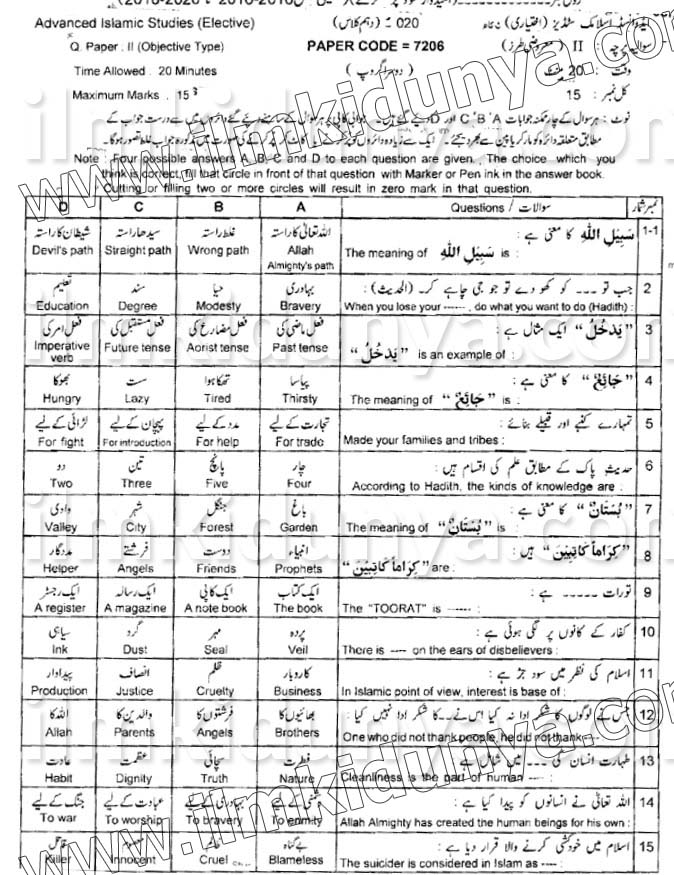 Advanced Islamic Studies (Elective)
020 (دہم کلاس)
ایڈوانسڈ اسلامک سٹڈیز (اختیاری)
Q. Paper : II (Objective Type)
PAPER CODE = 7206
سوالیہ پرچہ : II (معروضی طرز)
Time Allowed : 20 Minutes
(دوسرا گروپ)
وقت : 20 منٹ
Maximum Marks : 15
کل نمبر : 15
Note : Four possible answers A, B, C and D to each question are given. The choice which you
think is correct, fill that circle in front of that question with Marker or Pen ink in the answer book.
Cutting or filling two or more circles will result in zero mark in that question.
D C B A Questions / سوالات نمبر شمار
شیطان کا راستہ سیدھا راستہ غلط راستہ اللہ تعالیٰ کا راستہ سَبِیْلِ اللّٰهِ کا معنی ہے : 1-1
Devil's path Straight path Wrong path Allah Almighty's path The meaning of سَبِیْلِ اللّٰهِ is :
تعلیم سند حیا بہادری جب تو ۔۔۔ کو کھو دے تو جو جی چاہے کر۔ (الحدیث) : 2
Education Degree Modesty Bravery When you lose your ------, do what you want to do (Hadith) :
فعل امر کی فعل مستقبل کی فعل مضارع کی فعل ماضی کی "یَدْخُلُ" ایک مثال ہے : 3
Imperative verb Future tense Aorist tense Past tense "یَدْخُلُ" is an example of :
بھوکا ست تھکا ہوا پیاسا "جَائِعٌ" کا معنی ہے : 4
Hungry Lazy Tired Thirsty The meaning of "جَائِعٌ" is :
لڑائی کے لیے پہچان کے لیے مدد کے لیے تجارت کے لیے تمہارے کنبے اور قبیلے بنائے : 5
For fight For introduction For help For trade Made your families and tribes :
دو تین پانچ چار حدیث پاک کے مطابق علم کی اقسام ہیں : 6
Two Three Five Four According to Hadith, the kinds of knowledge are :
وادی شہر جنگل باغ "بُسْتَانٌ" کا معنی ہے : 7
Valley City Forest Garden The meaning of "بُسْتَانٌ" is :
مددگار فرشتے دوست انبیاء "کِرَاماً کَاتِبِیْنَ" ہیں : 8
Helper Angels Friends Prophets "کِرَاماً کَاتِبِیْنَ" are :
ایک رجسٹر ایک رسالہ ایک کاپی ایک کتاب تورات ۔۔۔۔۔ ہے : 9
A register A magazine A note book The book The "TOORAT" is ------ :
سیاہی گرد مہر پردہ کفار کے کانوں پر لگی ہوئی ہے : 10
Ink Dust Seal Veil There is ---- on the ears of disbelievers :
پیداوار انصاف ظلم کاروبار اسلام کی نظر میں سود جڑ ہے : 11
Production Justice Cruelty Business In Islamic point of view, interest is base of :
اللہ کا والدین کا فرشتوں کا بھائیوں کا جس نے لوگوں کا شکر ادا نہ کیا اس نے ۔۔ کا شکر ادا نہیں کیا : 12
Allah Parents Angels Brothers One who did not thank people, he did not thank----
عادت عظمت سچائی فطرت طہارت انسان کی ۔۔۔ میں شامل ہے : 13
Habit Dignity Truth Nature Cleanliness is the part of human ---- :
جنگ کے لیے عبادت کے لیے بہادری کے لیے دشمنی کے لیے اللہ تعالیٰ نے انسانوں کو پیدا کیا ہے : 14
To war To worship To bravery To enmity Allah Almighty has created the human beings for his own :
قاتل معصوم ظالم بے گناہ اسلام میں خودکشی کرنے والا قرار دیا ہے : 15
Killer Innocent Cruel Blameless The suicider is considered in Islam as ---- :
www.ilmkidunya.com